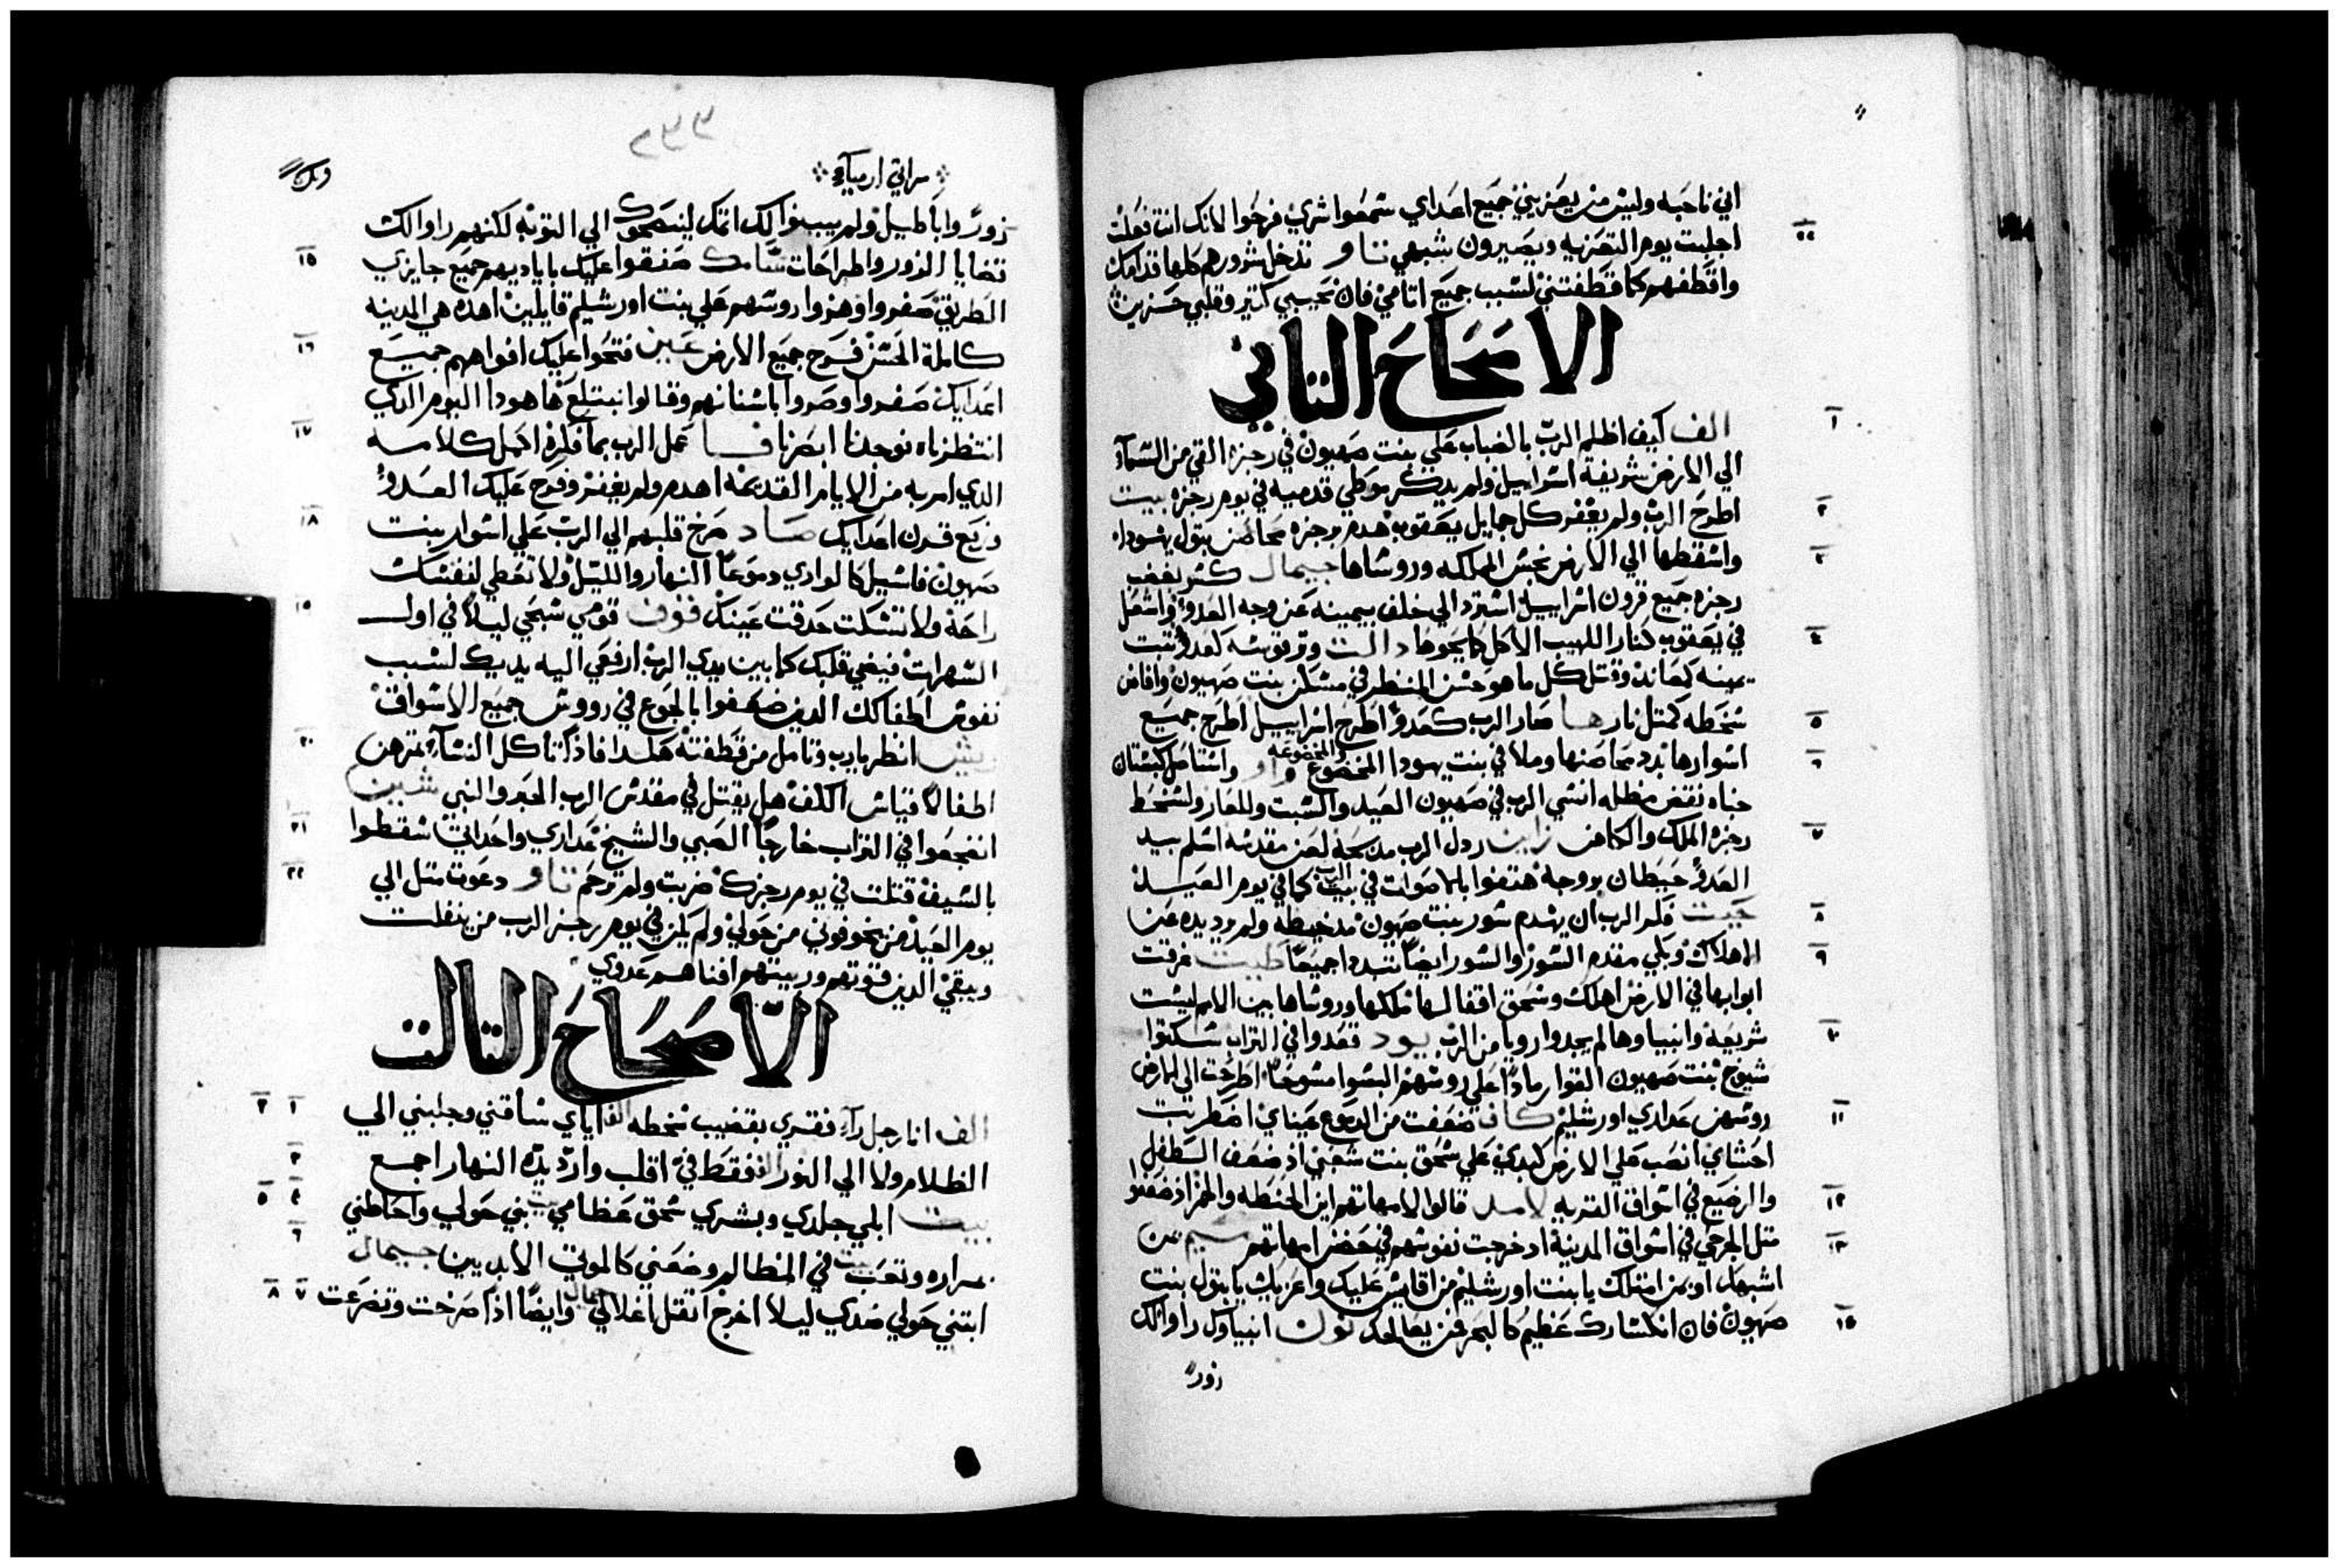 اني ناحبه وليس من يعزيني جميع اعداي سمعوا شري فرحوا لانك انت فعلت
٢٢ اجلبت يوم التعزيه ويصيرون شبهي تاو تدخل شرورهم كلها قدامك
واقطفهم كما قطفتني لسبب جميع اتامي فان نحيبي كتير وقلبي حزين
الاصحاح التاني
١ الف كيف اظلم الرب بالضباب علي بنت صهيون في رجزه القي من السمآء
الي الارض شريفة اسراييل ولم يدكر موطي قدميه في يوم رجزه بيت
٢ اطرح الرب ولم يغفر كل جمايل يعقوب هدم برجزه محاصن بتول يهودا
٣ واسقطها الي الارض نجس المملكه وروساها جيمال كسر بغضب
رجزه جميع قرون اسراييل استرد الي خلف يمينه عن وجه العدو واشعل
٤ في يعقوب كنار اللهيب الاكل كما يحوها دالت وتر قوسه كعدو تبت
يمينه كمعاند وقتل كل ما هو حسن المنظر في مسكن بنت صهيون وافاض
٥ سخطه كمتل نار ها صار الرب كعدو اطرح اسراييل اطرح جميع
٦ اسوارها بدد محاصنها وملا في بنت يهودا المخضوع والمخضوعه واو واستاصل كبستان
خباه نقض مظله انسي الرب في صهيون العيد والسبت وللعار ولسخط
٧ رجزه الملك والكاهن زاين ردل الرب مدبحه لعن مقدسه اسلم بيد
العدو حيطان بروجه هتفوا بالاصوات في بيت الرب كما في يوم العيد
٨ حيت فكر الرب ان يهدم سور بنت صهيون مد خيطه ولم يرد يده عن
٩ الاهلاك وبكي مقدم السور والسور ايضا تبدد جميعا طيت غرقت
ابوابها في الارض اهلك وسحق اقفالها ملكها وروساها بين الامم ليست
١٠ شريعة وانبياوها لم يجدوا رويا من الرب يود قعدوا في التراب سكتوا
شيوخ بنت صهيون القوا رمادا علي روسهم البسوا مسوحا اطرحت الي الارض
١١ روسهن عداري اورشليم كاف ضعفت من الدموع عيناي اضطربت
احشاي انصب علي الارض كبدي علي سحق بنت شعبي اذ ضعف الطفل
١٢ والرضيع في اسواق القريه لامد قالوا لامهاتهم اين الحنطه والخمر اذ ضعفوا
١٣ متل الجرحي في اسواق المدينة اد خرجت نفوسهم في حضن امهاتهم ميم بمن
اشبهك او بمن امتلك يا بنت اورشليم من اقايس عليك واعزيك يا بتول بنت
١٤ صهيون فان انكسارك عظيم كالبحر فمن يعالجك نون انبياوك راوا لك
زورا
٢٣٣
مراتي ارمياء
زورا واباطيل ولم يبينوا لك اتمك ليتصحوك الي التوبه لكنهم راوا لك
١٥ قضايا الزور واطراحات سامك صفقوا عليك باياديهم جميع جايزي
الطريق صفروا وهزوا روسهم علي بنت اورشليم قايلين اهده هي المدينه
١٦ كاملة الحسن فرح جميع الارض عين فتحوا عليك افواههم جميع
اعدايك صفروا وصروا باسنانهم وقالوا نبتلع ها هودا اليوم الدي
١٧ انتظرناه نوجدنا ابصرنا فا عمل الرب بما فكره اكمل كلامه
الدي امر به من الايام القديمة اهدم ولم يغفر وفرح عليك العدو
١٨ ورفع قرن اعدايك صاد صرخ قلبهم الي الرب علي اسوار بنت
صهيون فاسيل كالوادي دموعا النهار والليل ولا تعطي لنفسك
١٩ راحة ولا تسكت حدقت عينك قوف قومي سبحي ليلا في اول
السهرات فيضي قلبك كما بين يدي الرب ارفعي اليه يديك لسبب
نفوس اطفالك الدين ضعفوا بالجوع في رووس جميع الاسواق
٢٠ ريش انظر يا رب وتامل من قطفته هكدا فاذا تاكل النسآء تمرهن
اطفالا قياس الكف هل يقتل في مقدس الرب الحبر والنبي شين
٢١ انضجعوا في التراب خارجا الصبي والشيخ عداري واحداتي سقطوا
٢٢ بالسيف قتلت في يوم رجزك ضربت ولم ترحم تاو دعوت متل الي
يوم العيد من يخوفوني من حولي ولم يكن في يوم رجز الرب من ينفلت
ويبقي الدين قوتهم وربيتهم افناهم عدوي
الاصحاح التالت
١ ٢ الف انا رجل رآء فقري بقضيب سخطه الف اياي ساقني وجلبني الي
٣ الظلام ولا الي النور الف فقط في اقلب وارد يده النهار اجمع
٤ ٥ بيت ابلي جلدي وبشري سحق عظامي بيت بني حولي واحاطني
٦ مراره وتعب بيت في المظالم وضعني كالموتي الابديين جيمال
٧ ٨ ابتني حولي ضدي ليلا اخرج اتقل اغلالي جيمال وايضا اذا صرخت وتضرعت